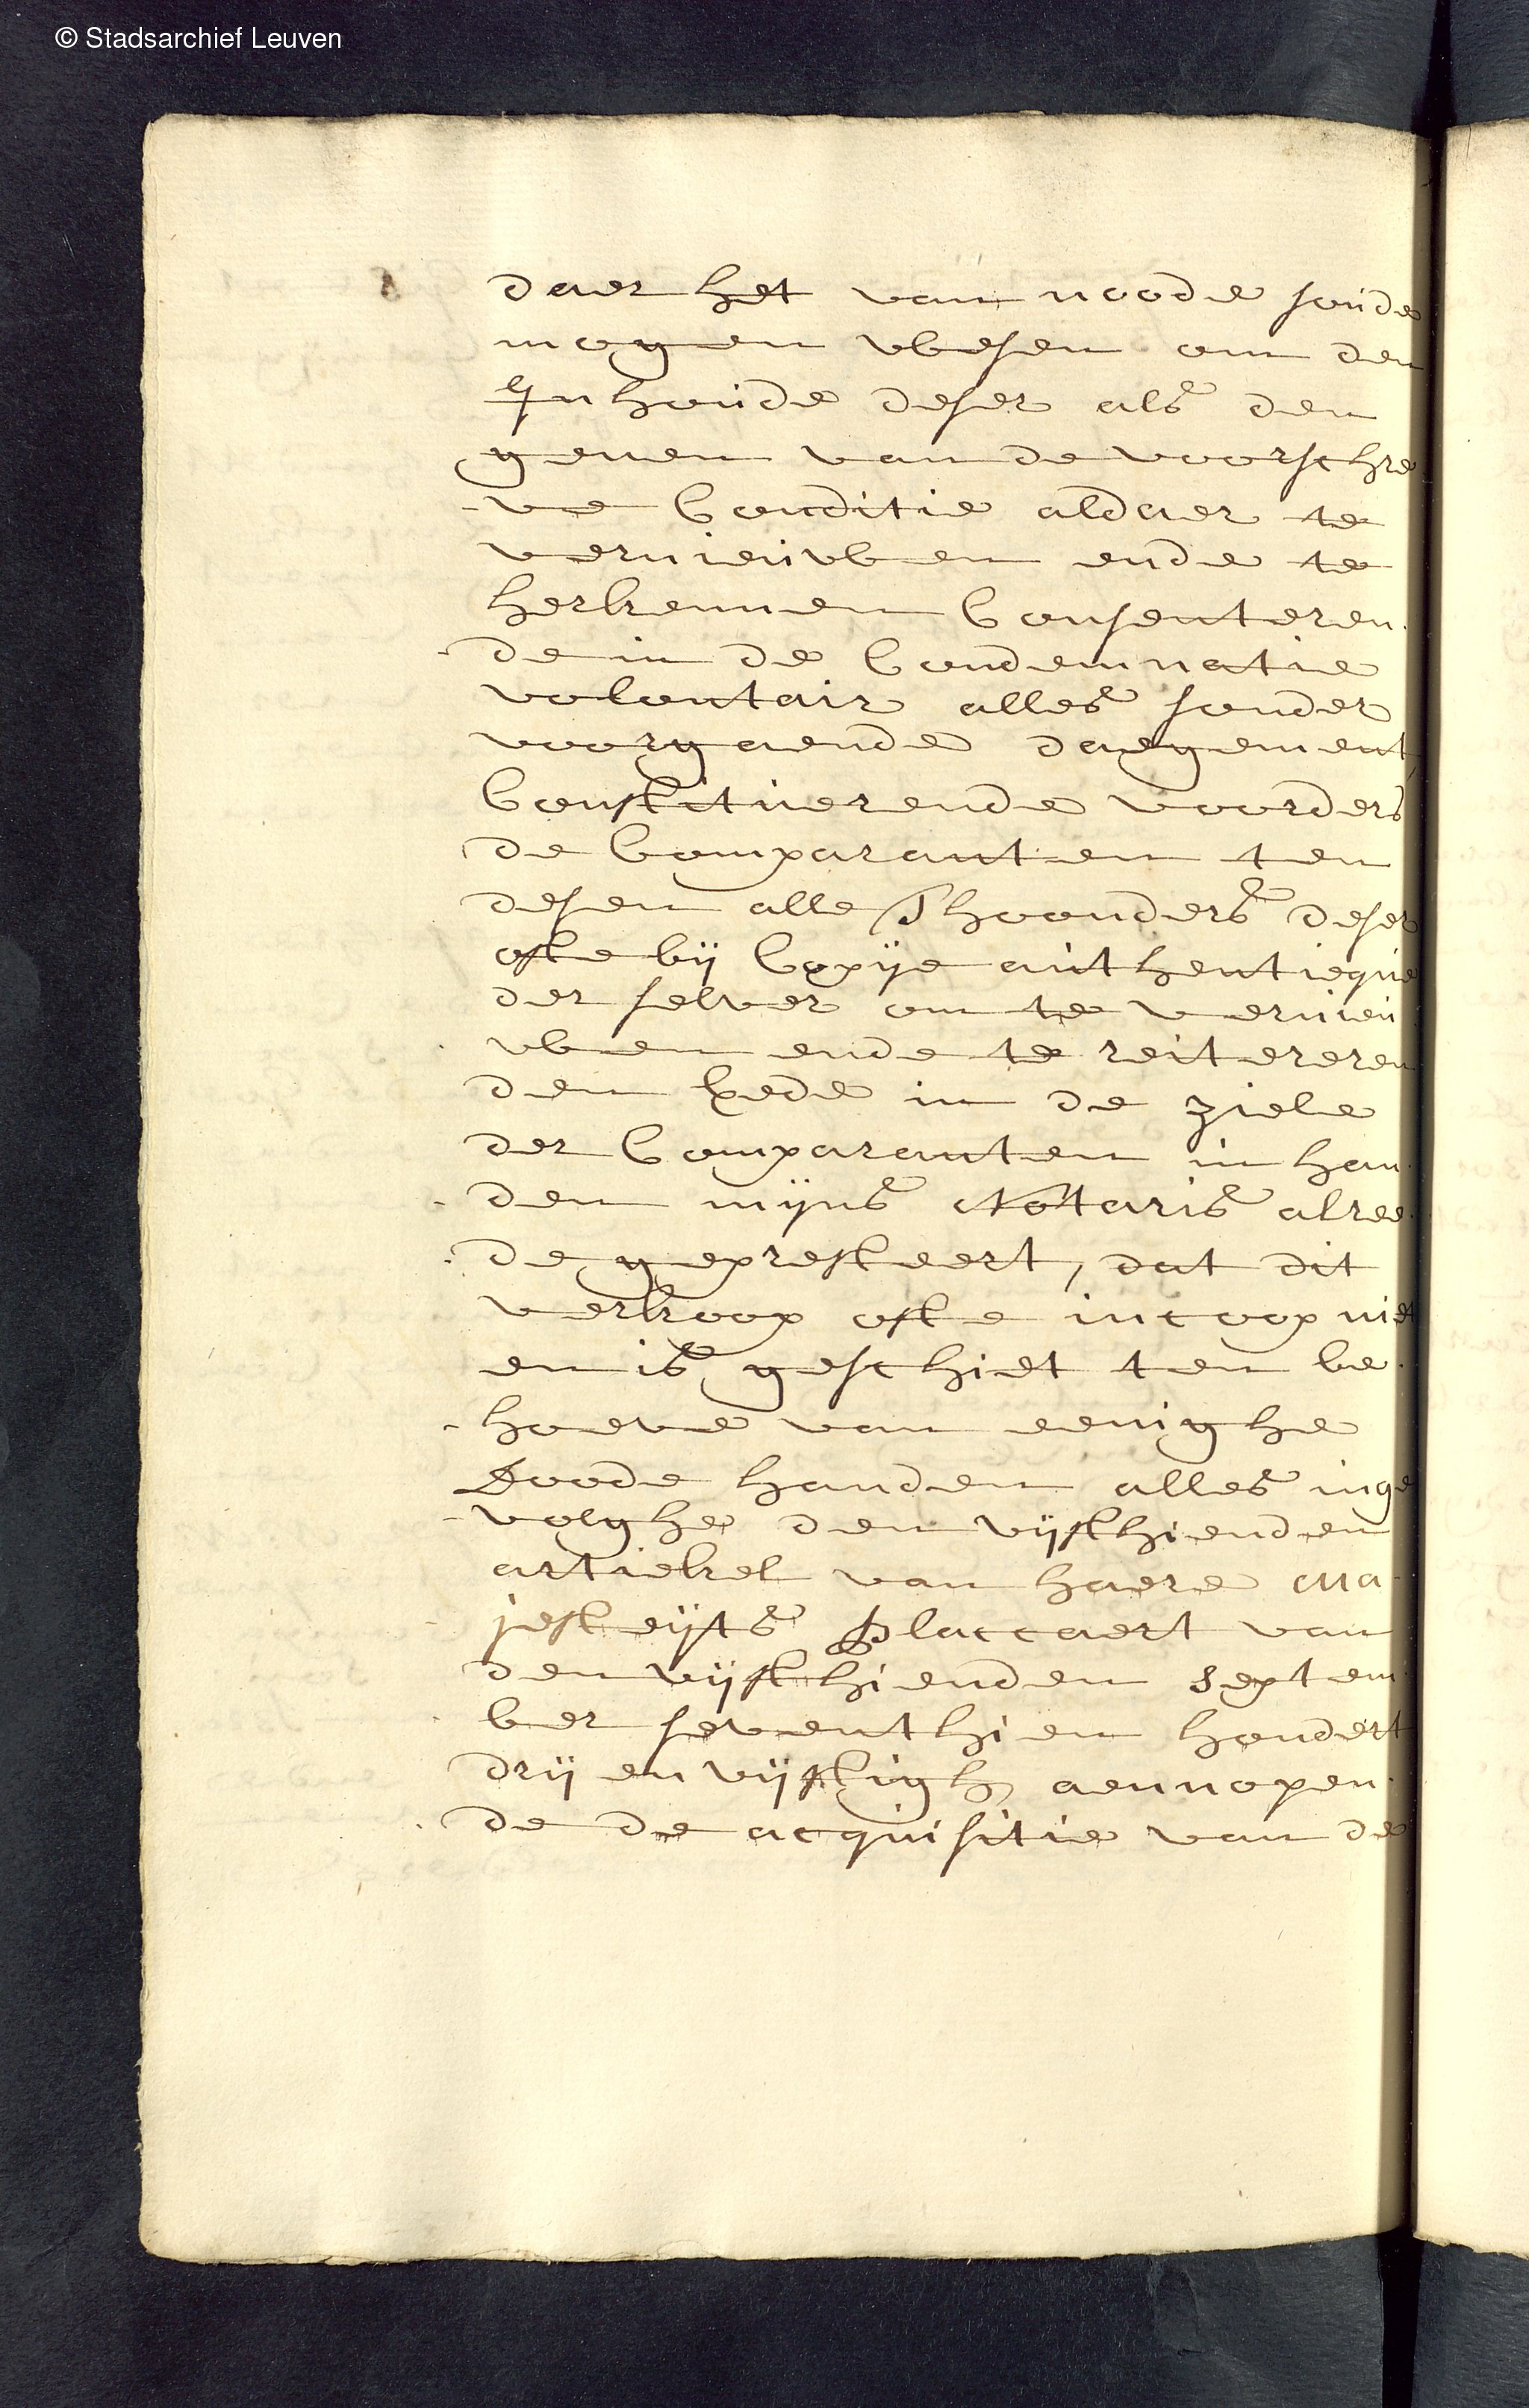 © Stadsarchief Leuven
daer het van noode soude
mogen wesen om den
Inhoude deser als den
genen van de voorschre
-ve Conditie aldaer te
vernieuwen ende te
herkennen Consenteren-
-de in de Condemnatie
volontair alles sonder
voorgaende daegement,
Constituerende voorders
de Comparanten ten
desen alle Thoonders deser
ofte bij Copije authentieque
der selver om te vernieu-
-wen ende te reitereren
den Eede in de ziele
der Comparanten in han-
-den mijns Notaris alree-
-de gepresteert, dat dit
verkoop ofte incoop niet
en is geschiet ten be-
-hoeve van eenighe
Doode handen alles inge
-volghe den vijfthienden
artiekel van haere Ma-
-jesteijts Placcaert van
den vijfthienden septem-
-ber seventhien hondert
drij en vijftigh aennopen-
-de de acquisitie van de